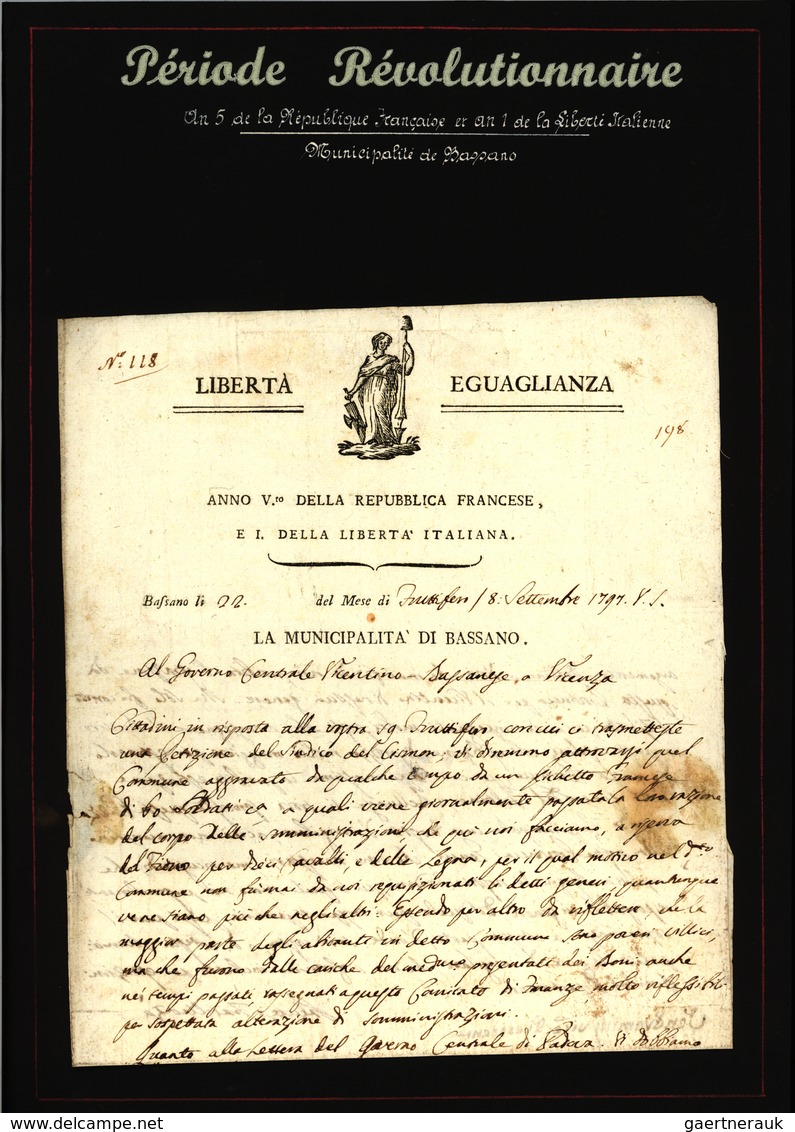 Période Révolutionnaire
An 5 de la République Française et an 1 de la Liberté Italienne
Municipalité de Bassano
N.º 118
LIBERTÀ EGUAGLIANZA
198
ANNO V.to DELLA REPUBBLICA FRANCESE,
E I. DELLA LIBERTA' ITALIANA.
Bassano li 22. del Mese di Fruttifero / 8: Settembre 1797. V. S.
LA MUNICIPALITA' DI BASSANO.
Al Governo Centrale Vicentino-Bassanese a Vicenza
Cittadini in risposta alla vostra 19 Fruttifero con cui ci trasmetteste
una Petizione del Sindico del Cismon, vi diremmo attrovarsi quel
Commune aggravato da qualche tempo da un Francese
di 60 Soldati c.a a quali viene giornalmente passata la razione
del corpo delle somministrazioni che qui noi facciamo, a
del Fieno per dieci cavalli, e delle Legna, per il qual motivo nel d.to
Commune non furono da noi requisizionati li detti generi, quantunque
ve ne siano più che negli altri. Essendo per altro da riflettere, che la
maggior parte degli abitanti in detto Commune sono poveri villici,
ma che furono dalle cariche del med.mo presentati dei Boni anche
nei tempi passati rassegnati a questo Comitato di Finanze, molto riflessibili
per sospettata alterazione di somministrazioni.
Quanto alla Lettera del Governo Centrale di Padova vi dobbiamo
delcampe.net gaertnerauk